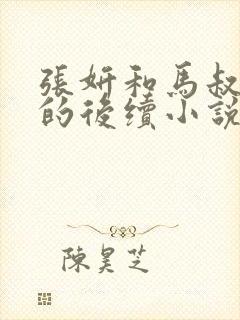 張妍和馬叔
的後續小說
陳昊芝